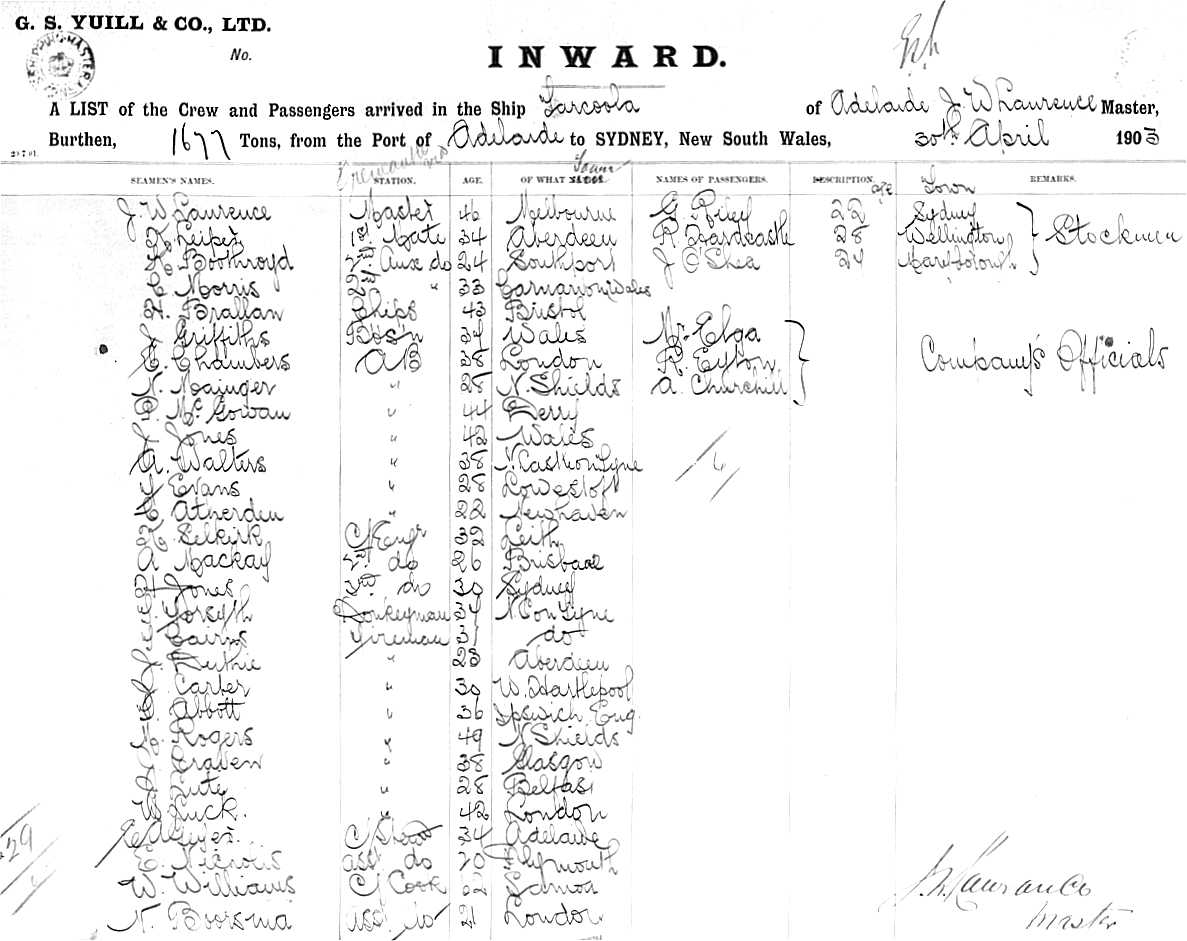 G. S. YUILL & CO., LTD.
No.
INWARD.
A LIST of the Crew and Passengers arrived in the Ship Tarcoola of Adelaide J. W Laurence Master,
Burthen, 1677 Tons, from the Port of Adelaide to SYDNEY, New South Wales, 30th April 1903
Fremantle
SEAMEN'S NAMES. STATION. AGE. OF WHAT Town NAMES OF PASSENGERS. DESCRIPTION. age Town REMARKS.
J. W Laurence Master 46 Melbourne G. Riley 22 Sydney
1st Mate 34 Aberdeen R Hardcastle 28 Wellington Stockmen
Boothroyd 2nd Aux do 24 Southport J O'Shea 24
C Morris 2nd " 33 Carnarvon Wales
H. Brallan Ships 43 Bristol
J Griffiths Bos'n 34 Wales Mr Elga
E. Chambers AB 38 London R. Eyton Company's Officials
N. Mainger " 28 N. Shields A. Churchill
D. McGowan " 44 Derry
J Jones " 42 Wales
A. Walters " 38 N. Castleon Tyne
Y Evans " 28 Lowestoft
C Atherden " 22 Newhaven
Selkirk C/Engr 32 Leith
A Mackay 2nd do 26 Brisbane
Jones 3rd do 30 Sydney
Forsyth Donkeyman 34 N on Tyne
Cairns Fireman 31 do
J. Ruthie " 23 Aberdeen
Carter " 30 W. Hartlepool
Abbott " 36 Ipswich Eng
Rogers " 49 N Shields
Craven " 38 Glasgow
" 28 Belfast
W Luck " 42 London
29
C/Stewd 34 Adelaide
E. asst do 20 Plymouth
W. Williams C/ Cook 52 Samoa
N. Boorsma asst do 21 London
Master